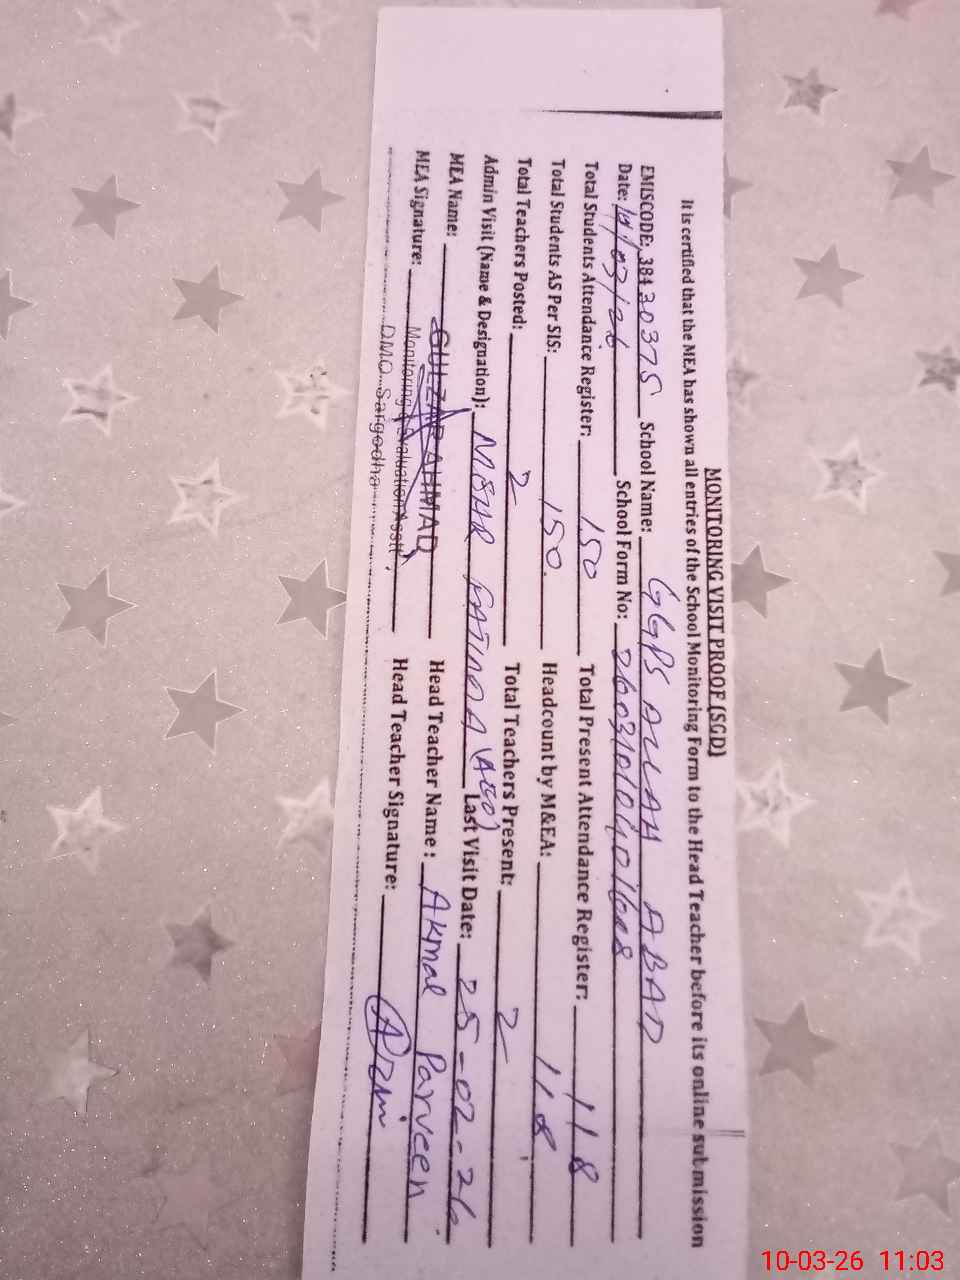 MONITORING VISIT PROOF (SGD)
It is certified that the MEA has shown all entries of the School Monitoring Form to the Head Teacher before its online submission
EMISCODE: 38430375 School Name: GGPS ALLAH ABAD
Date: /03/26 School Form No:
Total Students Attendance Register: 150 Total Present Attendance Register: 118
Total Students AS Per SIS: 150. Headcount by M&EA: 118
Total Teachers Posted: 2 Total Teachers Present: 2
Admin Visit (Name & Designation): (AEO) Last Visit Date: 25-02-26
MEA Name: GULZAR AHMAD Head Teacher Name: Akmal Parveen
MEA Signature: Monitoring & Evaluation Asstt. Head Teacher Signature:
DMO Sargodha
10-03-26 11:03